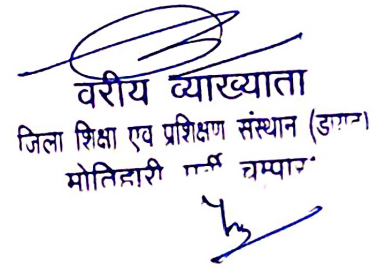 वरीय व्याख्याता
जिला शिक्षा एव प्रशिक्षण संस्थान (डायट)
मोतिहारी